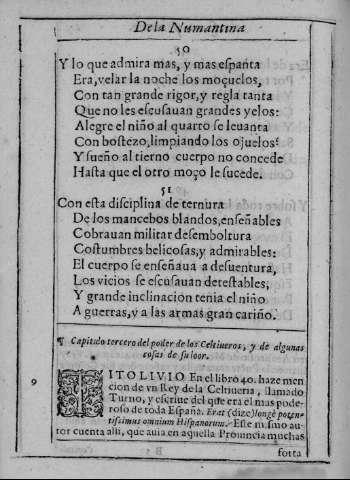 De la Numantina
50
Y lo que admira mas, y mas espanta
Era, velar la noche los moçuelos,
Con tan grande rigor, y regla tanta
Que no les escusauan grandes yelos:
Alegre el niño al quarto se leuanta
Con bostezo, limpiando los ojuelos:
Y sueño al tierno cuerpo no concede
Hasta que el otro moço le sucede.
51
Con esta disciplina de ternura
De los mancebos blandos, enseñables
Cobrauan militar desemboltura
Costumbres belicosas, y admirables:
El cuerpo se enseñaua a desuentura,
Los vicios se escusauan detestables,
Y grande inclinacion tenia el niño
A guerras, y a las armas gran cariño.
¶ Capitulo tercero del poder de los Celtiueros, y de algunas
cosas de su loor.
9
TITO LIVIO En el libro 40. haze men
cion de vn Rey de la Celtiueria, llamado
Turno, y escriue del que era el mas pode-
roso de toda España. Erat (dize) longè poten-
tissimus omnium Hispanorum. Este mismo au-
tor cuenta alli, que auia en aquella Prouincia muchas